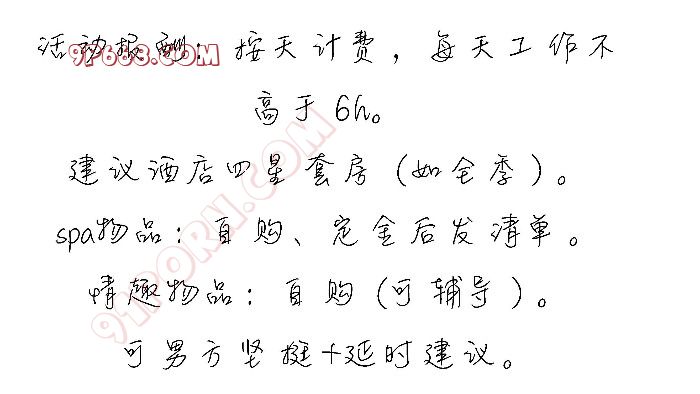 活动报酬：按天计费，每天工作不
高于6h。
建议酒店四星套房（如全季）。
spa物品：自购、定金后发清单。
情趣物品：自购（可辅导）。
可男方坚挺+延时建议。
91PORN.COM